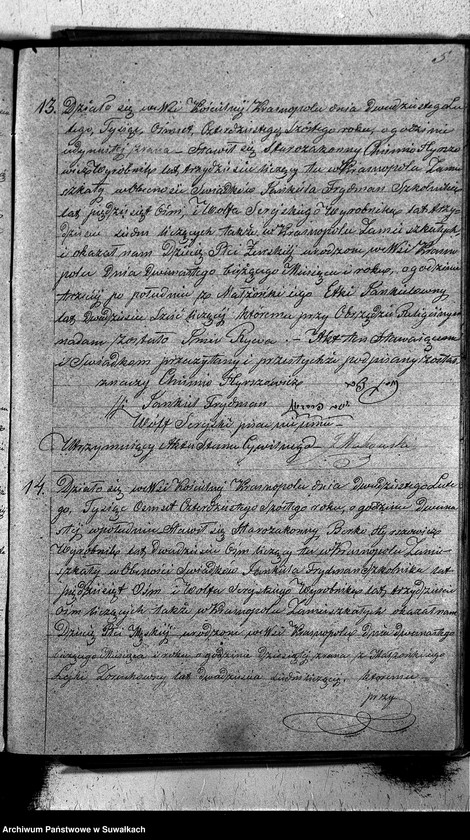 5
13. Działo się w Wsi Kościelnéj Krasnopolu dnia Dwudziestego Lu-
tego, Tysiąc Ośmset, Czterdziestego Szóstego roku, o godzinie
zrana – Stawił się Starozakonny Chiemie Hyrszo-
wicz Wyrobnik, lat trzydzieści liczący tu w Krasnopolu Zamie-
szkały, w obecności Świadków Jankiela Frydman Szkolnika
lat pięćdziesiąt Ośm, i Wolfa Seryjskiego Wyrobnika lat trzy-
dzieści liczących także w Krasnopolu Zamieszkałych
i okazał nam Dziecię Płci Żeńskiéj urodzone w Wsi Krasno-
polu Dnia bieżącego Miesiąca i roku, o godzinie
trzeciéj po południu z Małżonki jego Etki Jankielowny
lat Dwadzieścia Sześć liczącéj; któremu przy Obrzędzie Religijnym
nadane zostało Imie Rywa. – Akt ten Stawiającemu
i Świadkom przeczytany i podpisany został
znaczy Chiemie Hyrszowicz
Jankiel Frydman
Wolf Seryjski pisać nieumie
Utrzymujący Akta Stanu Cywilnego
14. Działo się w Wsi Kościelnéj Krasnopolu dnia dwudziestego Lute-
go, Tysiąc Ośmset Czterdziestego Szóstego roku, o godzinie Dwuna-
stéj w południe Stawił się Starozakonny Berko Hyrszowicz
Wyrobnik lat Dwadzieścia Ośm liczący tu w Krasnopolu Zamie-
szkały w Obecności Świadków Jankiela Frydman Szkolnika lat
pięćdziesiąt Ośm i Wolfa Seryjskiego Wyrobnika lat trzydzieści
Ośm liczących także w Krasnopolu Zamieszkałych okazał nam
Dziecię Płci Męskiéj, urodzone w Wsi Krasnopolu Dnia
bieżącego Miesiąca i roku o godzinie Dziesiątéj zrana z Małżonki jego
lat dwadzieścia siedm liczącéj, któremu
przy
Archiwum Państwowe w Suwałkach